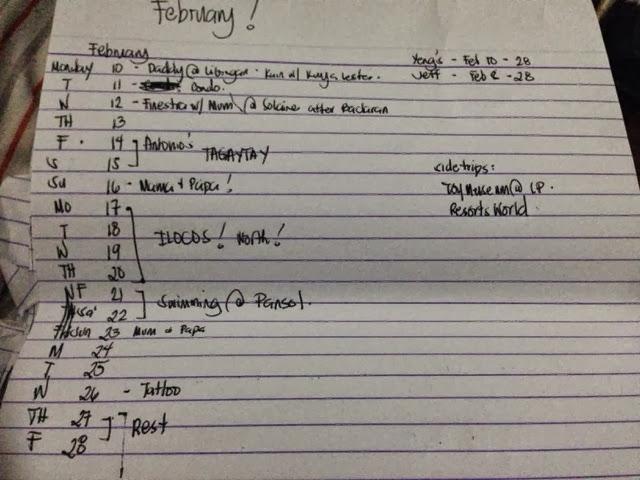 February!
February
Monday 10 - Daddy @ Libingan - Kain w/ Kuya Lester.
T 11 - Condo.
W 12 - Finestra w/ Mum @ Solaire after Paclaran
TH 13
F. 14 Antonio's
S 15 TAGAYTAY
Su 16 - Mama + Papa!
Mo 17
T 18 ILOCOS! North!
W 19
TH 20
F 21 Swimming @ Pansol.
Sat 22
Sun 23 Mum & Papa
M 24
T 25
W 26 - Tattoo
TH 27 Rest
F 28
Yeng's - Feb 10 - 28
Jeff - Feb - 28
side trips:
Toy Museum @ LP.
Resorts World.